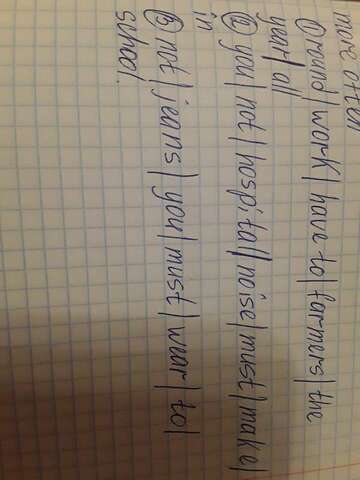 more often
① round | work | have to | farmers | the
year | all
② you | not | hospital | noise | must | make |
in
③ not | jeans | you | must | wear | to |
school.